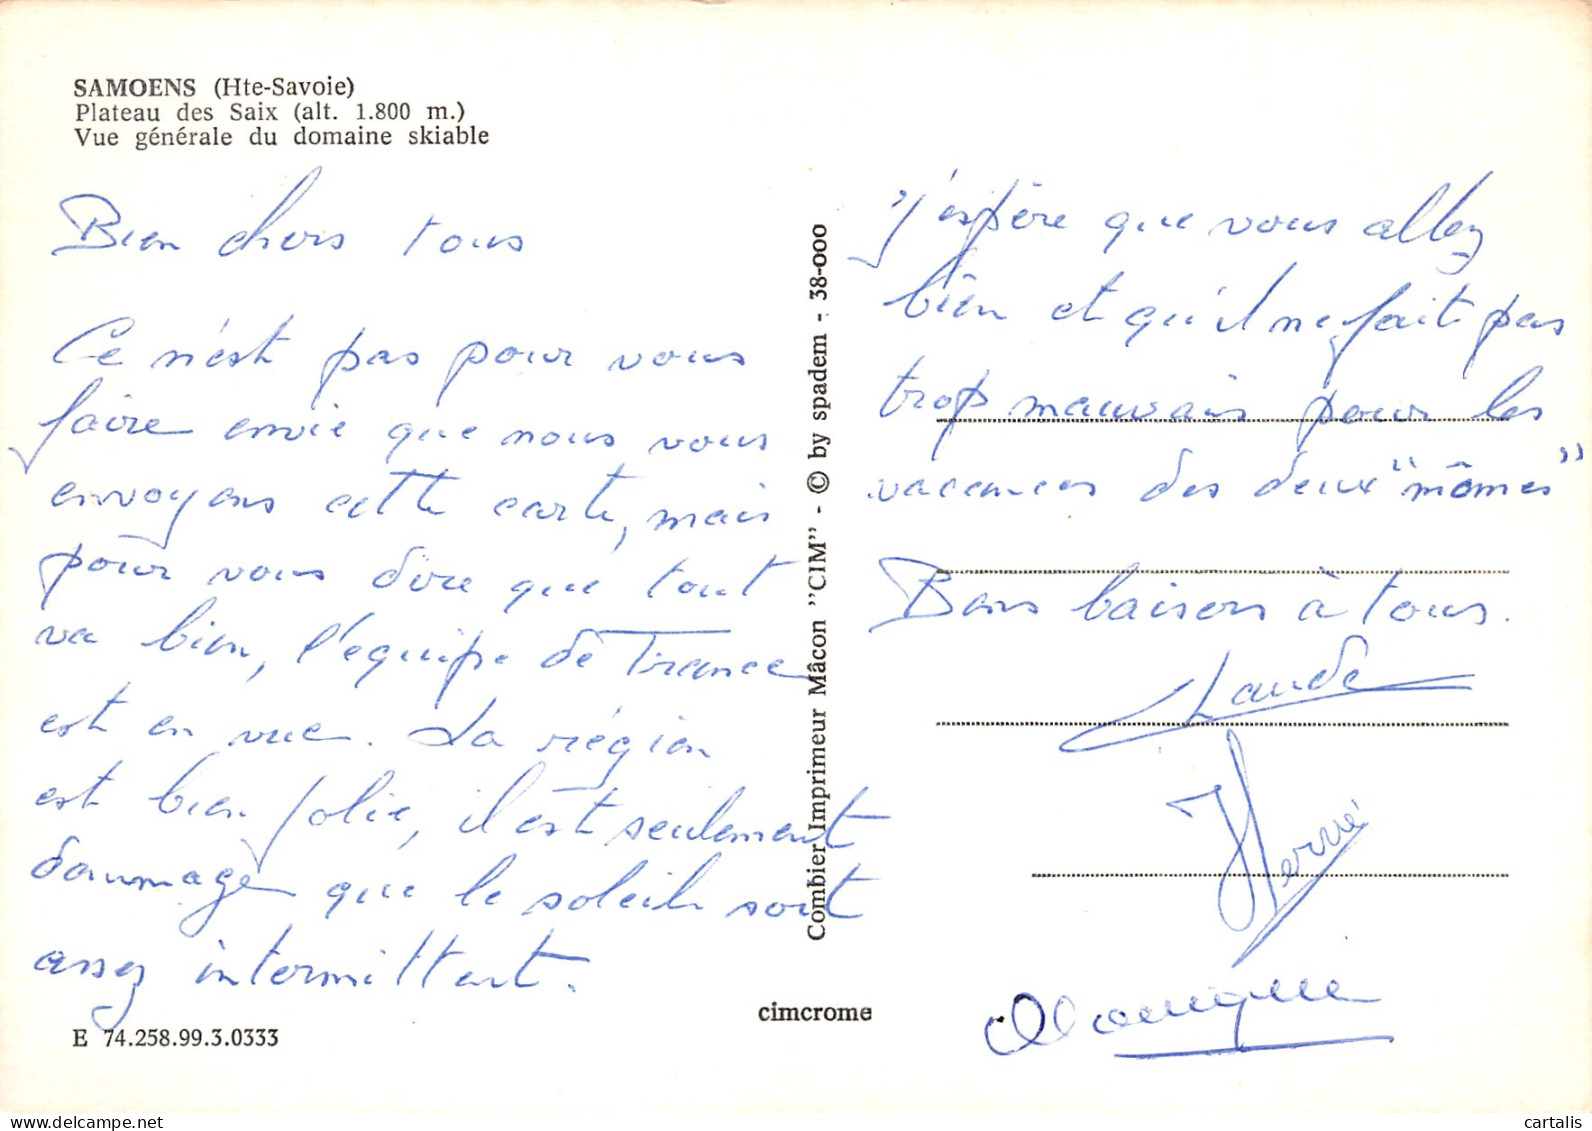 SAMOENS (Hte-Savoie)
Plateau des Saix (alt. 1.800 m.)
Vue générale du domaine skiable
Bien chers tous
Ce n'est pas pour vous
faire envie que nous vous
envoyons cette carte, mais
pour vous dire que tout
va bien, l'équipe de France
est en vue. La région
est bien jolie, il est seulement
dommage que le soleil soit
assez intermittent.
E 74.258.99.3.0333
Combier Imprimeur Mâcon "CIM" - © by spadem - 38-000
cimcrome
j'espère que vous allez
bien et qu'il ne fait pas
trop mauvais pour les
vacances des deux "mômes"
Bons baisers à tous.
Claude
Hervé
Monique
www.delcampe.net
cartalis